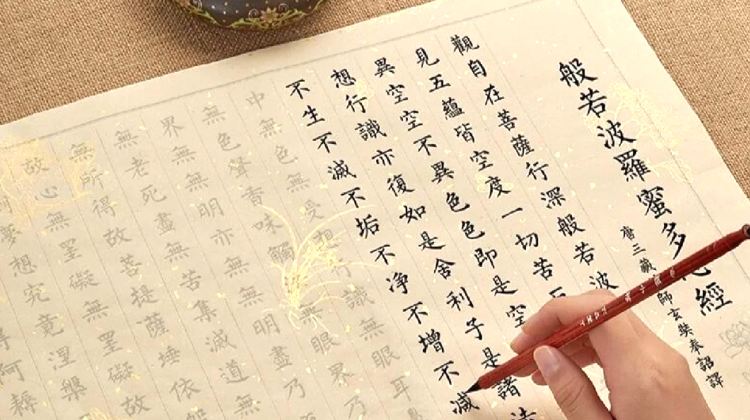 般若波羅蜜多心經
唐三藏師玄奘奉詔譯
觀自在菩薩行深般若波
見五蘊皆空度一切苦
異空空不異色色即是空
想行識亦復如是舍利子是諸法
不生不滅不垢不净不增不減
中無色無受想行識無眼耳
無色聲香味觸無眼界乃
界無無明亦無無明盡乃
無老死盡無苦集滅道
無所得故菩提薩埵依
故心無罣礙無罣礙故
夢想究竟涅槃
得阿耨